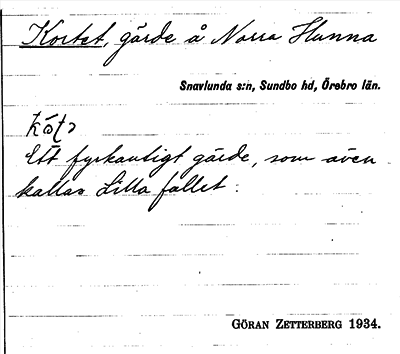 Kortet, gärde å Norra Hunna
Snavlunda s:n, Sundbo hd, Örebro län.
Ett fyrkantigt gärde, som även
kallas Lilla fallet.
GÖRAN ZETTERBERG 1934.